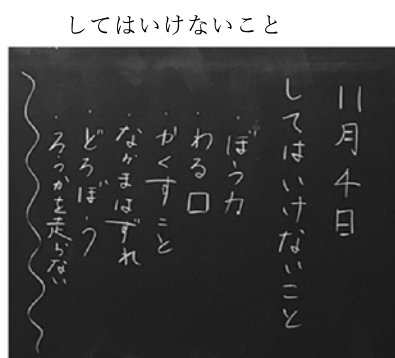 してはいけないこと
11月4日
してはいけないこと
・ぼう力
・わる口
・かくすこと
・なかまはずれ
・どろぼう
・ろうかを走らない